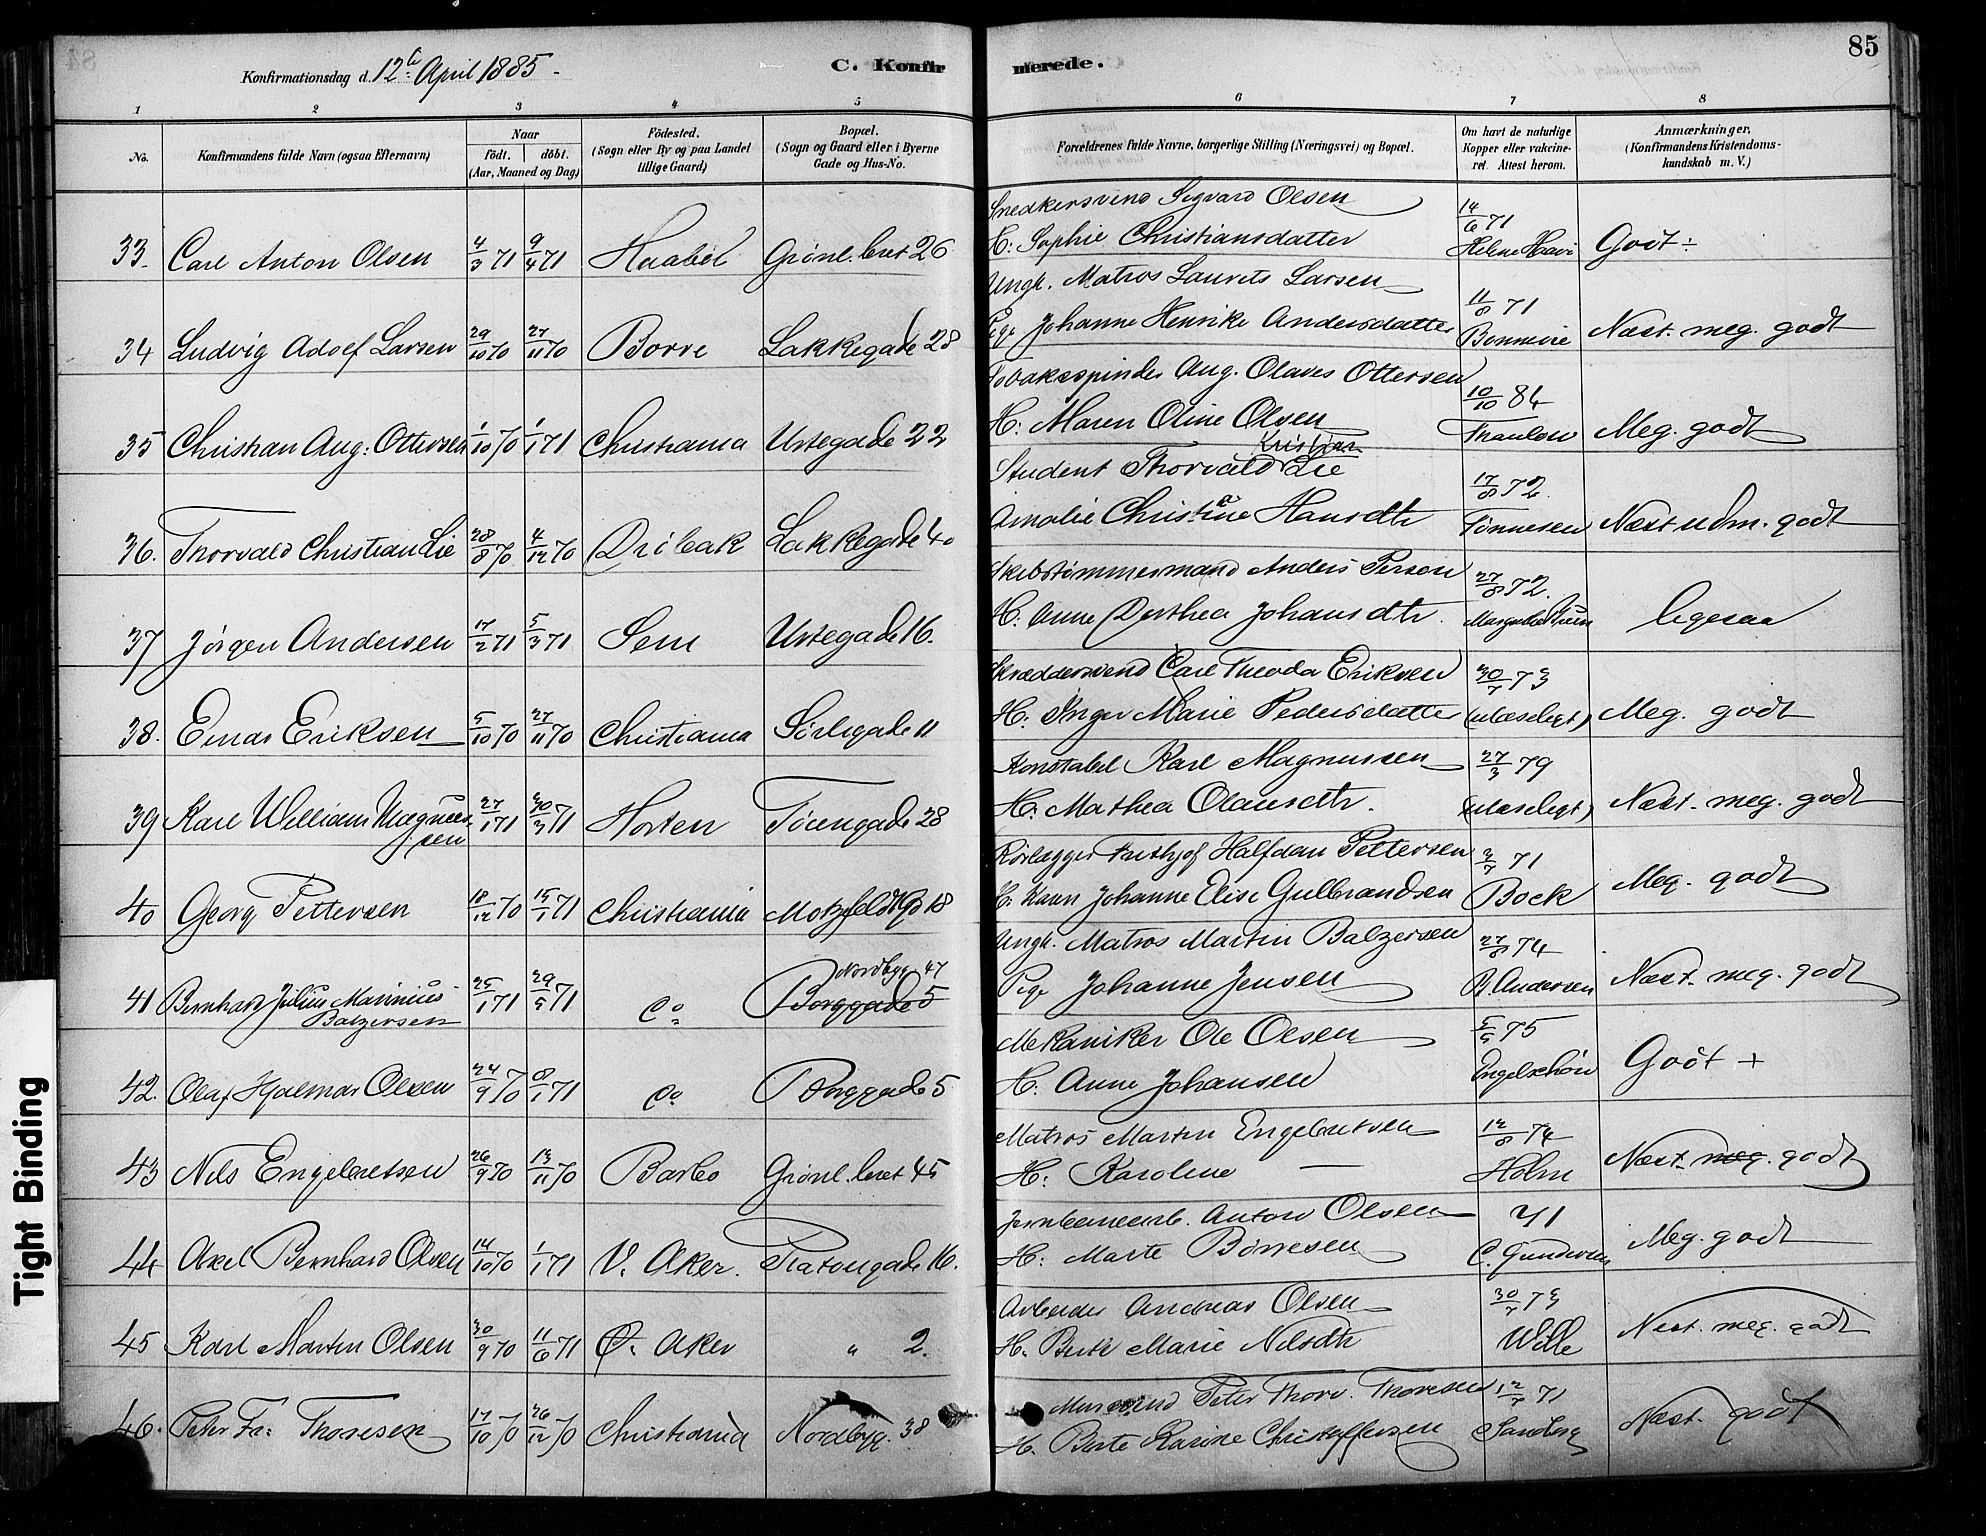 85
Konfirmationsdag d. 12te April 1885.
C. Konfirmerede.
1 2 3 4 5 6 7 8
No.
Konfirmandens fulde Navn (ogsaa Efternavn)
Naar
födt. döbt.
(Aar, Maaned og Dag)
Födested.
(Sogn eller By og paa Landet
tillige Gaard)
Bopæl.
(Sogn og Gaard eller i Byerne
Gade og Hus-No.
Forældrenes fulde Navne, borgerlige Stilling (Næringsvei) og Bopæl.
Om havt de naturlige
Kopper eller vakcine-
ret. Attest herom.
Anmærkninger.
(Konfirmandens Kristendoms-
kundskab m. V.)
Snedkersvend Sigvard Olsen 14/6 71
33. Carl Anton Olsen 4/3 71 9/4 71 Haabøl Grønl. leret 26 H: Sophie Christiansdatter Helene Haavi Godt ÷
Ungk. Matros Laurits Larsen 11/8 71
34 Ludvig Adolf Larsen 29/10 70 27/11 70 Borre Lakkegade 28 Pige Johanne Henrike Andersdatter Næst. meg. godt
Tobakspinder Aug. Olaves Ottersen 10/10 84
35 Christian Aug: Ottersen 1/10 70 1/1 71 Christiania Urtegade 22 H: Maren Oline Olsen Meg. godt
Kristian
Student Thorvald Lie 17/8 72.
36. Thorvald Christian Lie 28/8 70 4/12 70 Drøbak Lakkegade 40 Amalie Christine Hansdtr Tønnesen Næst udm. godt
Skibstømmermand Anders Person 27/8 72.
37 Jørgen Andersen 17/2 71 5/3 71 Sem Urtegade 16. H: Anne Dorthea Johansdtr. ligesaa
Skræddersvend Carl Theoda Eriksen 30/7 73
38. Einar Eriksen 5/10 70 27/11 70 Christiania Sørligade 11 H: Inger Marie Pedersdatter (ulæseligt) Meg. godt
Konstabel Karl Magnussen 27/3 79
39 Karl William Magnus- 27/1 71 30/3 71 Horten Tøiengade 28 H: Mathea Olausdtr. (ulæseligt) Næst. meg. godt
sen
Rørlægger Frithjof Halfdan Pettersen 3/7 71
40 Georg Pettersen 18/12 70 15/1 71 Christiania Motzfeldtsg 18 H. Karen Johanne Elise Gulbrandsen Bock Meg. godt
Nordbyg. 47
Ungk. Matros Martin Balzersen 27/8 74
41 Bernhard Julius Marinius 25/1 71 29/5 71 Co Borggade 5 Pige Johanne Jensen B. Andersen Næst. meg. godt
Balzersen
Mekaniker Ole Olsen 5/5 75
42. Olaf Hjalmar Olsen 24/9 70 8/1 71 Co Borggade 5 H: Anne Johansen Engelschøn Godt +
Matros Martin Engebretsen 12/8 74
43 Nils Engebretsen 26/9 70 13/11 70 Barbo Grønl. leret 45 H: Karoline — Holm Næst. meg. godt
Jernbanearb. Anton Olsen 71
44 Axel Bernhard Olsen 14/10 70 1/1 71 V. Aker. Platougade 16. H: Marte Børresen C. Gundersen Meg. godt
Arbeider Andreas Olsen 30/7 73
45 Karl Martin Olsen 30/9 70 11/6 71 Ø. Aker " 2. H. Berte Marie Nilsdtr Wille Næst. meg. godt
Mursvend Peter Thorv. Thoresen 12/7 71
46. Peter Fr: Thoresen 17/10 70 26/12 70 Christiania Nordbyg. 38 H. Berte Karine Christoffersen Sandberg Næst. godt
Tight Binding